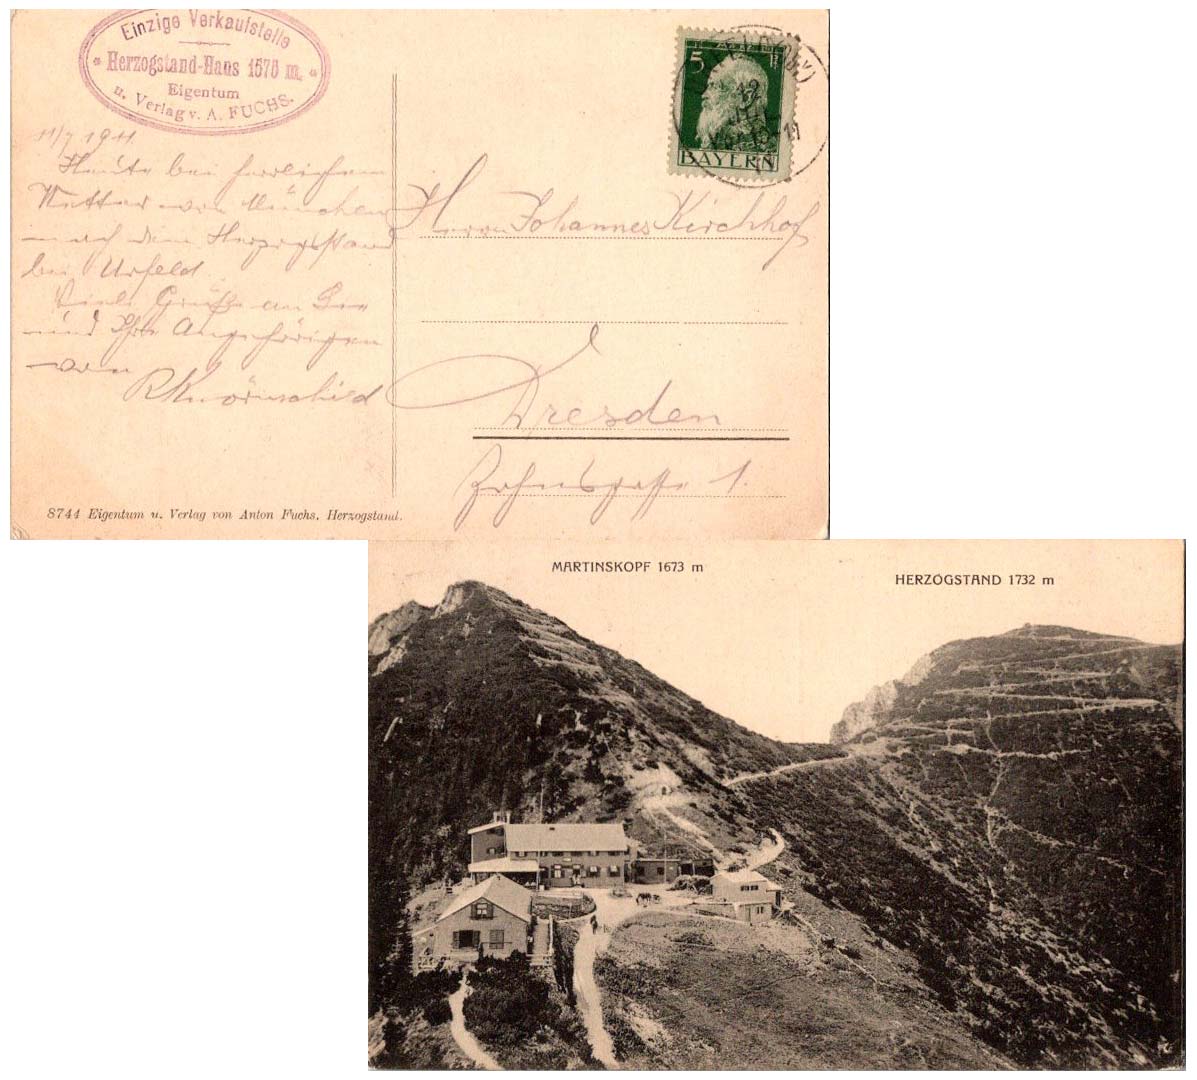 Einzige Verkaufstelle
Herzogstand-Haus 1575 m.
Eigentum
u. Verlag v. A. FUCHS.
5
BAYERN
11/7 1911
Heute bei herrlichem
Wetter von München
nach dem Herzogstand
bei Urfeld
Viele Grüße an Sie
und Ihre Angehörigen
von
RKnörnschild
Herrn Johannes Kirchhof
Dresden
Zahnsgasse 1.
8744 Eigentum u. Verlag von Anton Fuchs, Herzogstand.
MARTINSKOPF 1673 m
HERZOGSTAND 1732 m